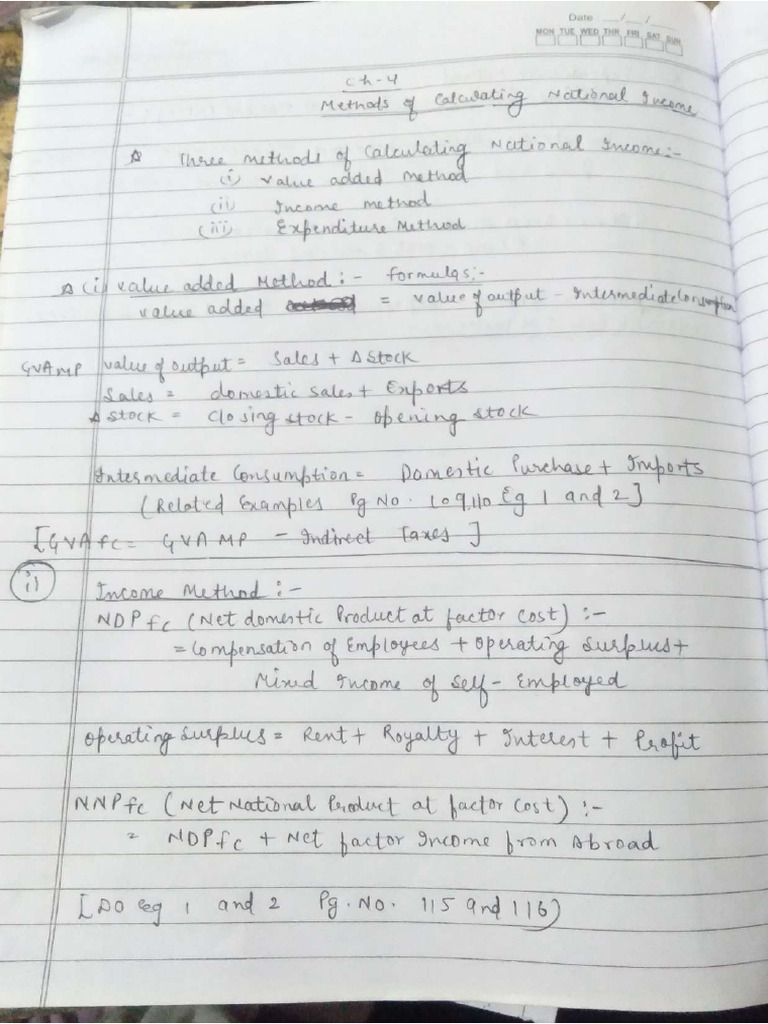 Date __/__/__
MON TUE WED THR FRI SAT SUN
Ch-4
Methods of Calculating National Income
Three methods of Calculating National Income:-
(i) value added method
(ii) Income method
(iii) Expenditure Method
(i) value added Method :- formulas:-
value added = value of output - Intermediate Consumption
GVA MP value of output = Sales + Δ Stock
Sales = domestic sales + Exports
Δ stock = Closing stock - opening stock
Intermediate Consumption = Domestic Purchase + Imports
(Related Examples Pg No. 109,110 Eg 1 and 2]
[GVA fc = GVA MP - Indirect Taxes]
ii) Income Method :-
NDP fc (Net domestic Product at factor cost) :-
= Compensation of Employees + operating surplus +
Mixed Income of Self-Employed
operating Surplus = Rent + Royalty + Interest + Profit
NNP fc (Net National Product at factor cost) :-
= NDP fc + Net factor Income from Abroad
[DO eg 1 and 2 Pg. No. 115 and 116)